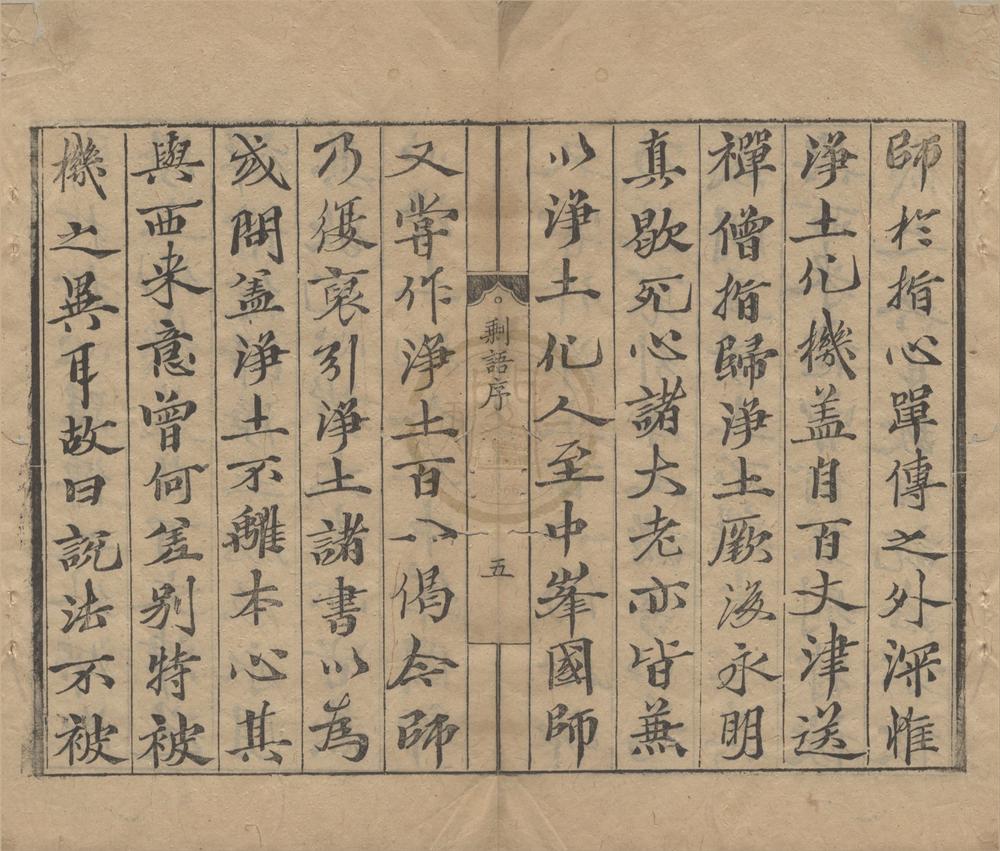 師於指心單傳之外深惟
淨土化機盖自百丈津送
禪僧指歸淨土厥後永明
真歇死心諸大老亦皆兼
以淨土化人至中峯國師
剩語序
五
又嘗作淨土百八偈今師
乃復裒引淨土諸書以為
或問盖淨土不離本心其
與西来意曾何差别特被
機之異耳故曰說法不被